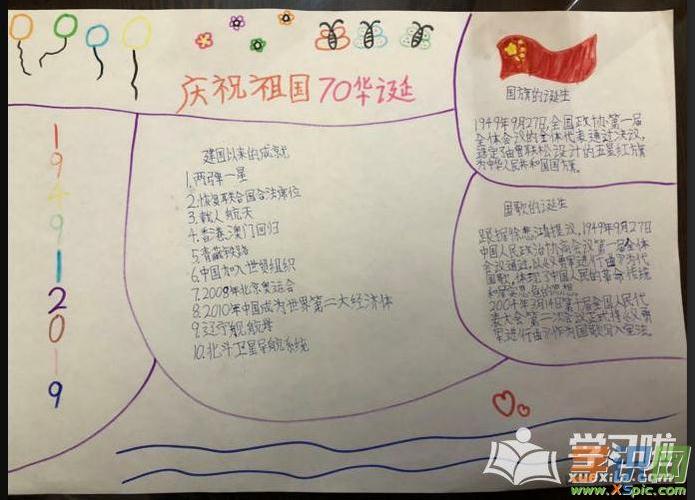 庆祝祖国70华诞
1949
1
2019
建国以来的成就
1.两弹一星
2.恢复联合国合法席位
3.载人航天
4.香港澳门回归
5.青藏铁路
6.中国加入世贸组织
7.2008年北京奥运会
8.2010年中国成为世界第二大经济体
9.辽宁舰航母
10.北斗卫星导航系统
国旗的诞生
1949年9月27日,全国政协第一届
全体会议的全体代表通过决议,
选定了由曾联松设计的五星红旗
为中华人民共和国国旗。
国歌的诞生
跟据徐悲鸿提议,1949年9月27日
中国人民政治协商会议第一届全体
会议通过,以义勇军进行曲为代
国歌,体现了中国人民的革命传统
和居安思危的思想
2004年3月14日第十届全国人民代
表大会第二次会议正式将义勇
军进行曲作为国歌写入宪法。
学习啦
xuexila.com
图片素材网
www.XSpic.com